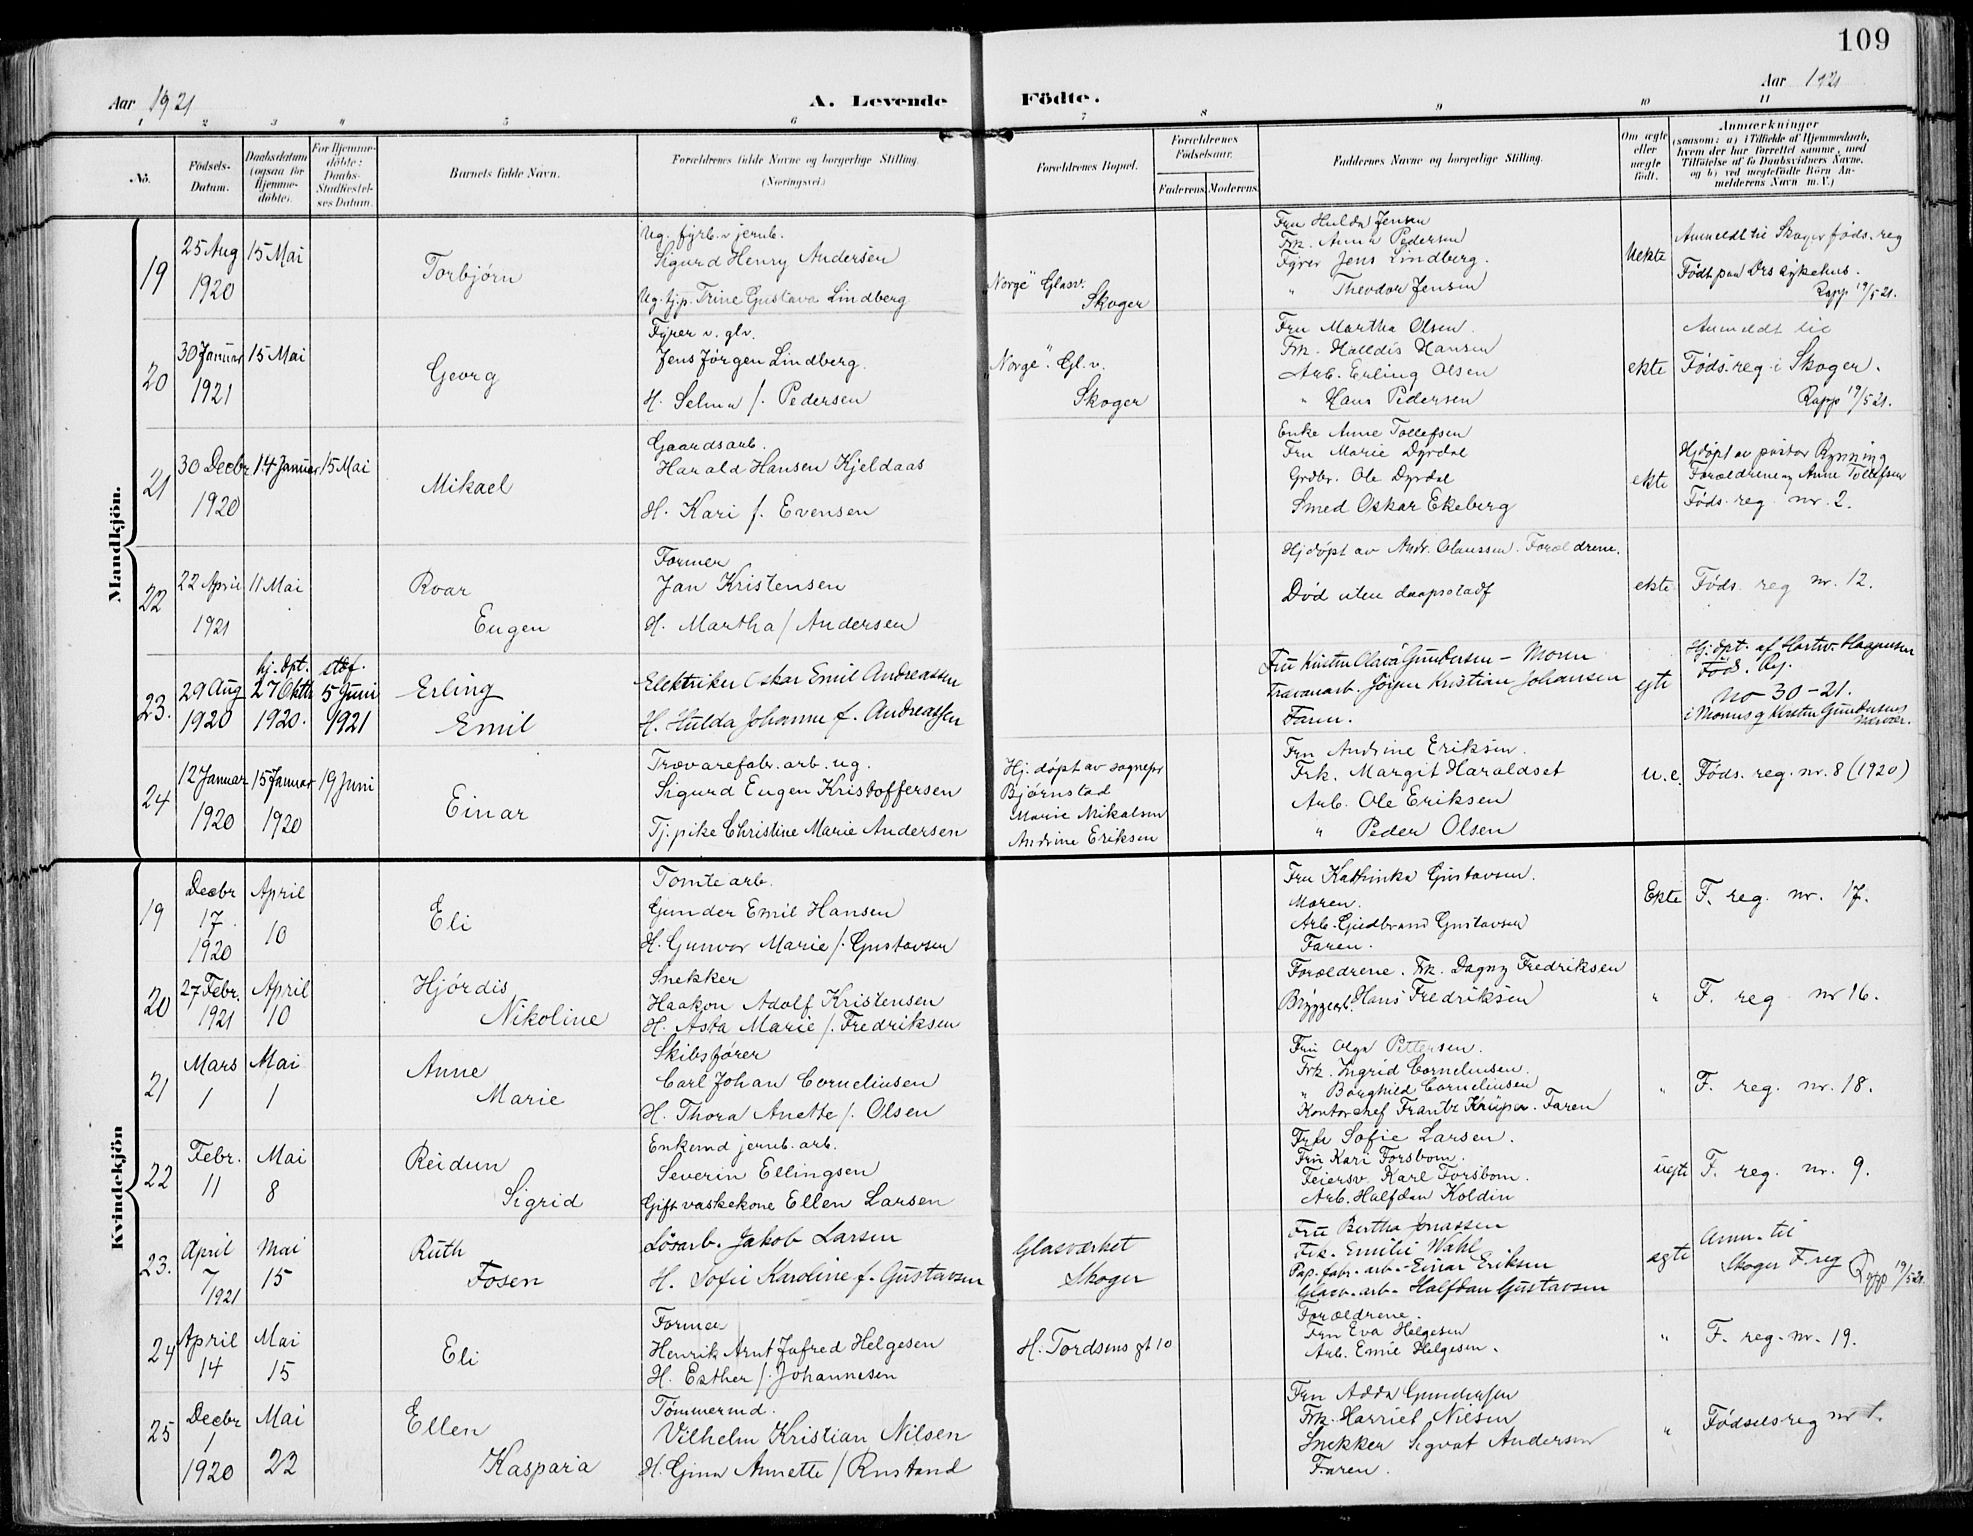 109
Aar 1921
A. Levende Födte.
Aar 1921
1 2 3 4 5 6 7 8 9 10 11
No.
Födsels-Datum.
Daabsdatum (ogsaa for Hjemmedöbte).
For Hjemmedöbte: Daabs-Stadfæstelses Datum.
Barnets fulde Navn.
Forældrenes fulde Navne og borgerlige Stilling. (Næringsvei.)
Forældrenes Bopæl.
Forældrenes Födselsaar.
Faderens. Moderens.
Faddernes Navne og borgerlige Stilling.
Om ægte eller uægte född.
Anmærkninger
(saasom: a) i Tilfælde af Hjemmedaab, hvem der har forrettet samme, med Tilföielse af to Daabsvidners Navne, og b) ved uægtefödte Börn Anmelderens Navn m. V.)
Mandkjön.
19
25 Aug 1920
15 Mai
Torbjørn
Ug. fyrb. v jernb.
Sigurd Henry Andersen
Ug. tjp. Trine Gustava Lindberg
"Norge" Glasv.
Skoger
Fru Hulda Jensen
Frk. Anna Pedersen
Fyrer Jens Lindberg.
" Theodor Jensen
Uekte
Anmeldt til Skoger føds. reg
Født paa Drs sykehus.
Rapp 19/5 21.
20
30 Januar 1921
15 Mai
Georg
Fyrer v. glv.
Jens Jørgen Lindberg.
H. Selma f. Pedersen
"Norge". Gl. v.
Skoger
Fru Martha Olsen.
Frk. Halldis Hansen
Arb. Erling Olsen
" Hans Pedersen
ekte
Anmeldt til
Føds. reg i Skoger.
Rapp 19/5 21.
21
30 Decbr 1920
14 Januar
15 Mai
Mikael
Gaardsarb.
Harald Hansen Kjeldaas
H. Kari f. Evensen
Enke Anne Tollefsen
Fru Marie Dyrdal
Grdbr. Ole Dyrdal
Smed Oskar Ekeberg
ekte
Hjdøpt av pastor Rynning
Forældrene og Anne Tollefsen
Føds. reg nr. 2.
22
22 April 1921
11 Mai
Roar
Eugen
Former
Jan Kristensen
H. Martha f Andersen
Hjdøpt av Andr. Olaussen. Forældrene.
Død uten daapsstadf
ekte
Føds. reg nr. 12.
23.
29 Aug 1920
hj. dpt. 27 Oktb 1920.
stdf. 5 Juni 1921
Erling
Emil
Elektriker Oskar Emil Andreassen
H. Hulda Johanne f. Andreassen
Fru Kirsten Olava Gundersen – Moren
Travarearb. Jörgen Kristian Johansen
Faren.
egte
Hj. dpt. af Hartvi Haagensen
Fød. Rg.
No 30–21.
i Morens og Kirsten Gundersens nærvær.
24
12 Januar 1920
15 Januar 1920
19 Juni
Einar
Trævarefabr. arb. ug.
Sigurd Eugen Kristoffersen
Tj. pike Christine Marie Andersen
Hj. døpt av sognepr
Bjørnstad
Marie Mikalsen
Andrine Eriksen
Fru Andrine Eriksen.
Frk. Margit Haraldset
Arb. Ole Eriksen
" Peder Olsen
u.e.
Føds. reg. nr. 8 (1920)
Kvindekjön
19
Decbr 17. 1920
April 10
Eli
Tomtearb.
Gunder Emil Hansen
H. Gunvor Marie f. Gustavsen
Fru Kathinka Gustavsen.
Moren.
Arb. Gudbrand Gustavsen
Faren.
Ekte
F. reg. nr. 17.
20
27 Febr. 1921
April 10
Hjördis
Nikoline
Snekker
Haakon Adolf Kristensen
H. Asta Marie f. Fredriksen
Forældrene. Frk. Dagny Fredriksen
Bryggearb. Hans Fredriksen
"
F. reg nr 16.
21
Mars 1
Mai 1
Anne
Marie
Skibsfører
Carl Johan Corneliusen
H. Thora Anette f. Olsen
Fru Olga Pettersen.
Frk. Ingrid Corneliusen.
" Borghild Corneliusen
Kontorchef Frantz Krüger. Faren
"
F. reg. nr. 18.
22
Febr. 11
Mai 8
Reidun
Sigrid
Enkemd jernb. arb.
Severin Ellingsen
Gift vaskekone Ellen Larsen
Frk Sofie Larsen.
Fru Kari Forsbom.
Feiersv. Karl Forsbom.
Arb. Halfdan Koldin
uegte
F. reg. nr. 9.
23.
April 7/1921
Mai 15
Ruth
Fosen
Lösarb. Jakob Larsen
H. Sofie Karoline f. Gustavsen
Glasværket
Skoger
Fru Bertha Jonassen
Frk. Emilie Wahl
Pap. fabr. arb. Einar Eriksen
Glasv. arb. Halfdan Gustavsen
egte
Anm. til
Skoger F reg
Rapp 19/5 21.
24
April 14
Mai 15
Eli
Former
Henrik Arnt Jafred Helgesen
H. Esther f. Johannesen
H. Tordsens gt 10
Forældrene.
Fru Eva Helgesen
Arb. Emil Helgesen.
"
F. reg. nr. 19.
25
Decbr 1 1920
Mai 22
Ellen
Kasparia
Tømmermd.
Vilhelm Kristian Nilsen
H. Gina Annette f Rustand
Fru Adda Gundersen
Frk. Harriet Nilsen
Snekker Sigvat Andersen
Faren.
"
Fødselsreg nr 1.